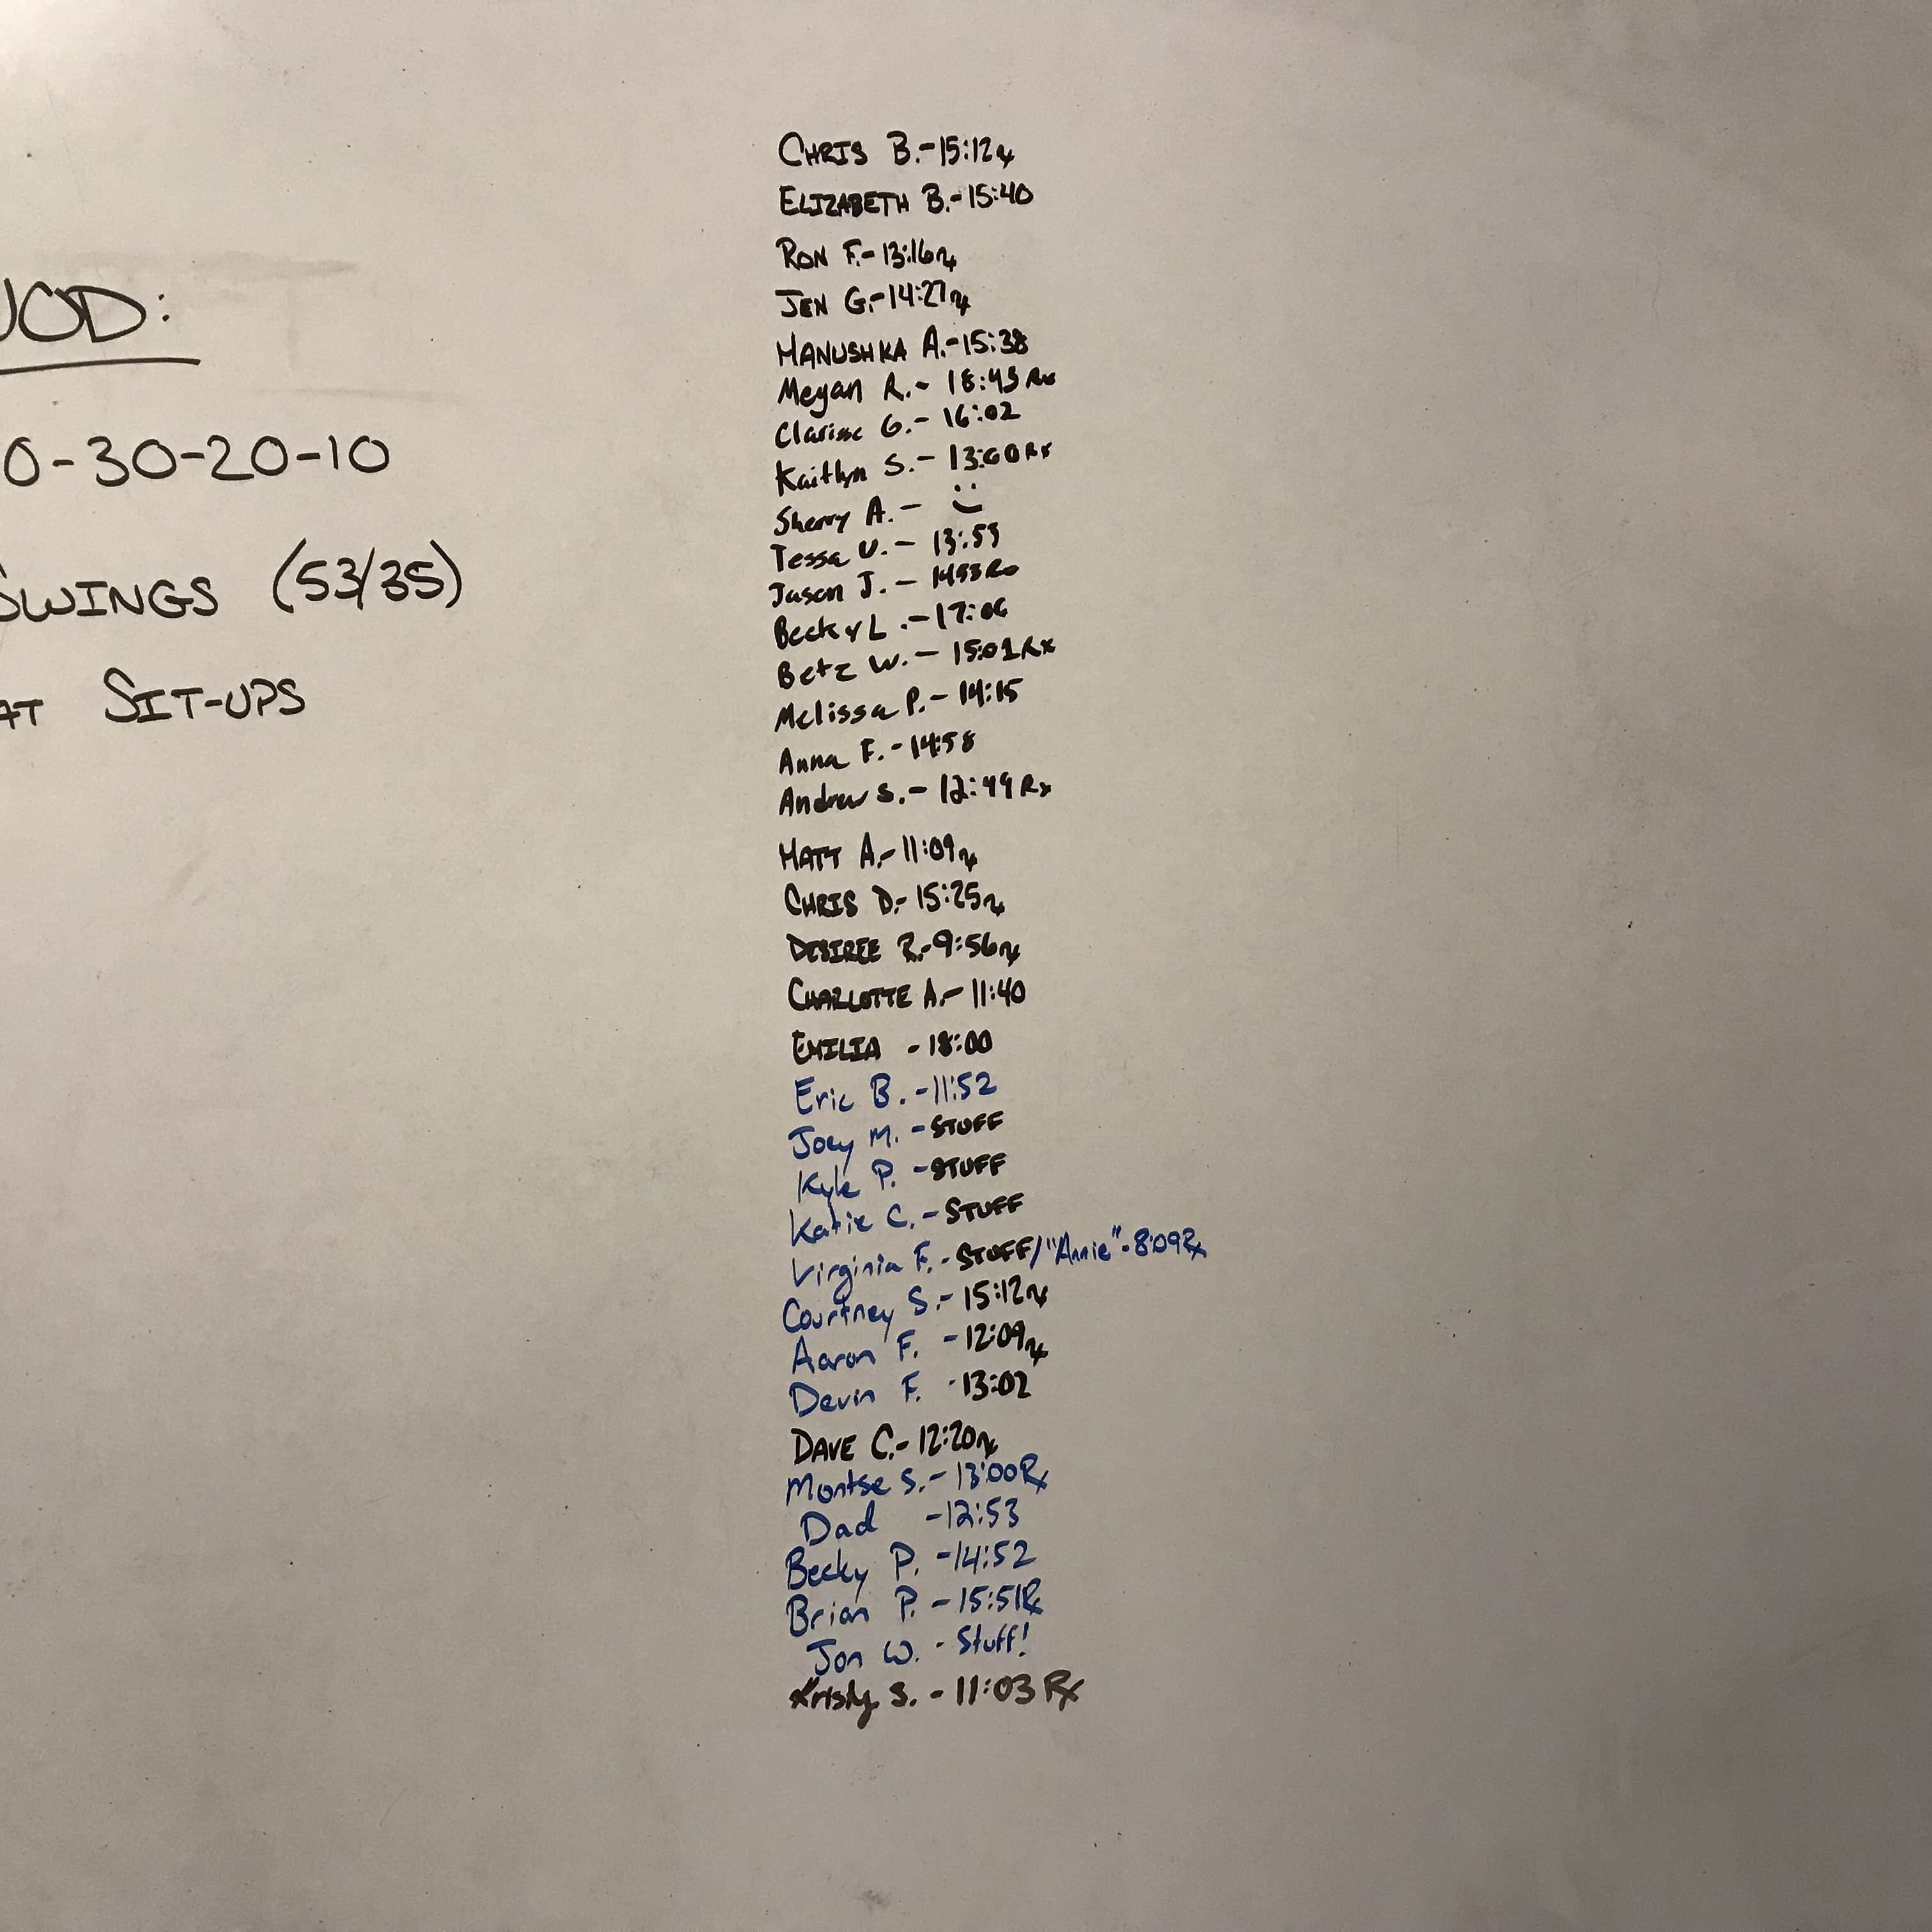 WOD:
0-30-20-10
SWINGS (53/35)
AT SIT-UPS
CHRIS B.-15:12 rx
ELIZABETH B.-15:40
RON F.-13:16 rx
JEN G.-14:27 rx
MANUSHKA A.-15:38
Megan R.- 18:43 Rx
Clarisse G.- 16:02
Kaitlyn S.- 13:00 Rx
Sherry A.- :)
Tessa U.- 13:53
Jason J.- 1453 Rx
Becky L.-17:06
Betz W.- 15:01 Rx
Melissa P.- 14:15
Anna F.-14:58
Andrew S.- 12:49 Rx
MATT A.-11:09 rx
CHRIS D.-15:25 rx
DESIREE R.-9:56 rx
CHARLOTTE A.-11:40
EMILIA -18:00
Eric B.-11:52
Joey M.-STUFF
Kyle P.-STUFF
Katie C.-STUFF
Virginia F.-STUFF/"Annie"-8:09 Rx
Courtney S.-15:12 rx
Aaron F. -12:09 rx
Devin F. -13:02
DAVE C.-12:20 rx
Montse S.-13:00 Rx
Dad -12:53
Becky P.-14:52
Brian P.-15:51 Rx
Jon W.-Stuff!
Kristy S.-11:03 Rx